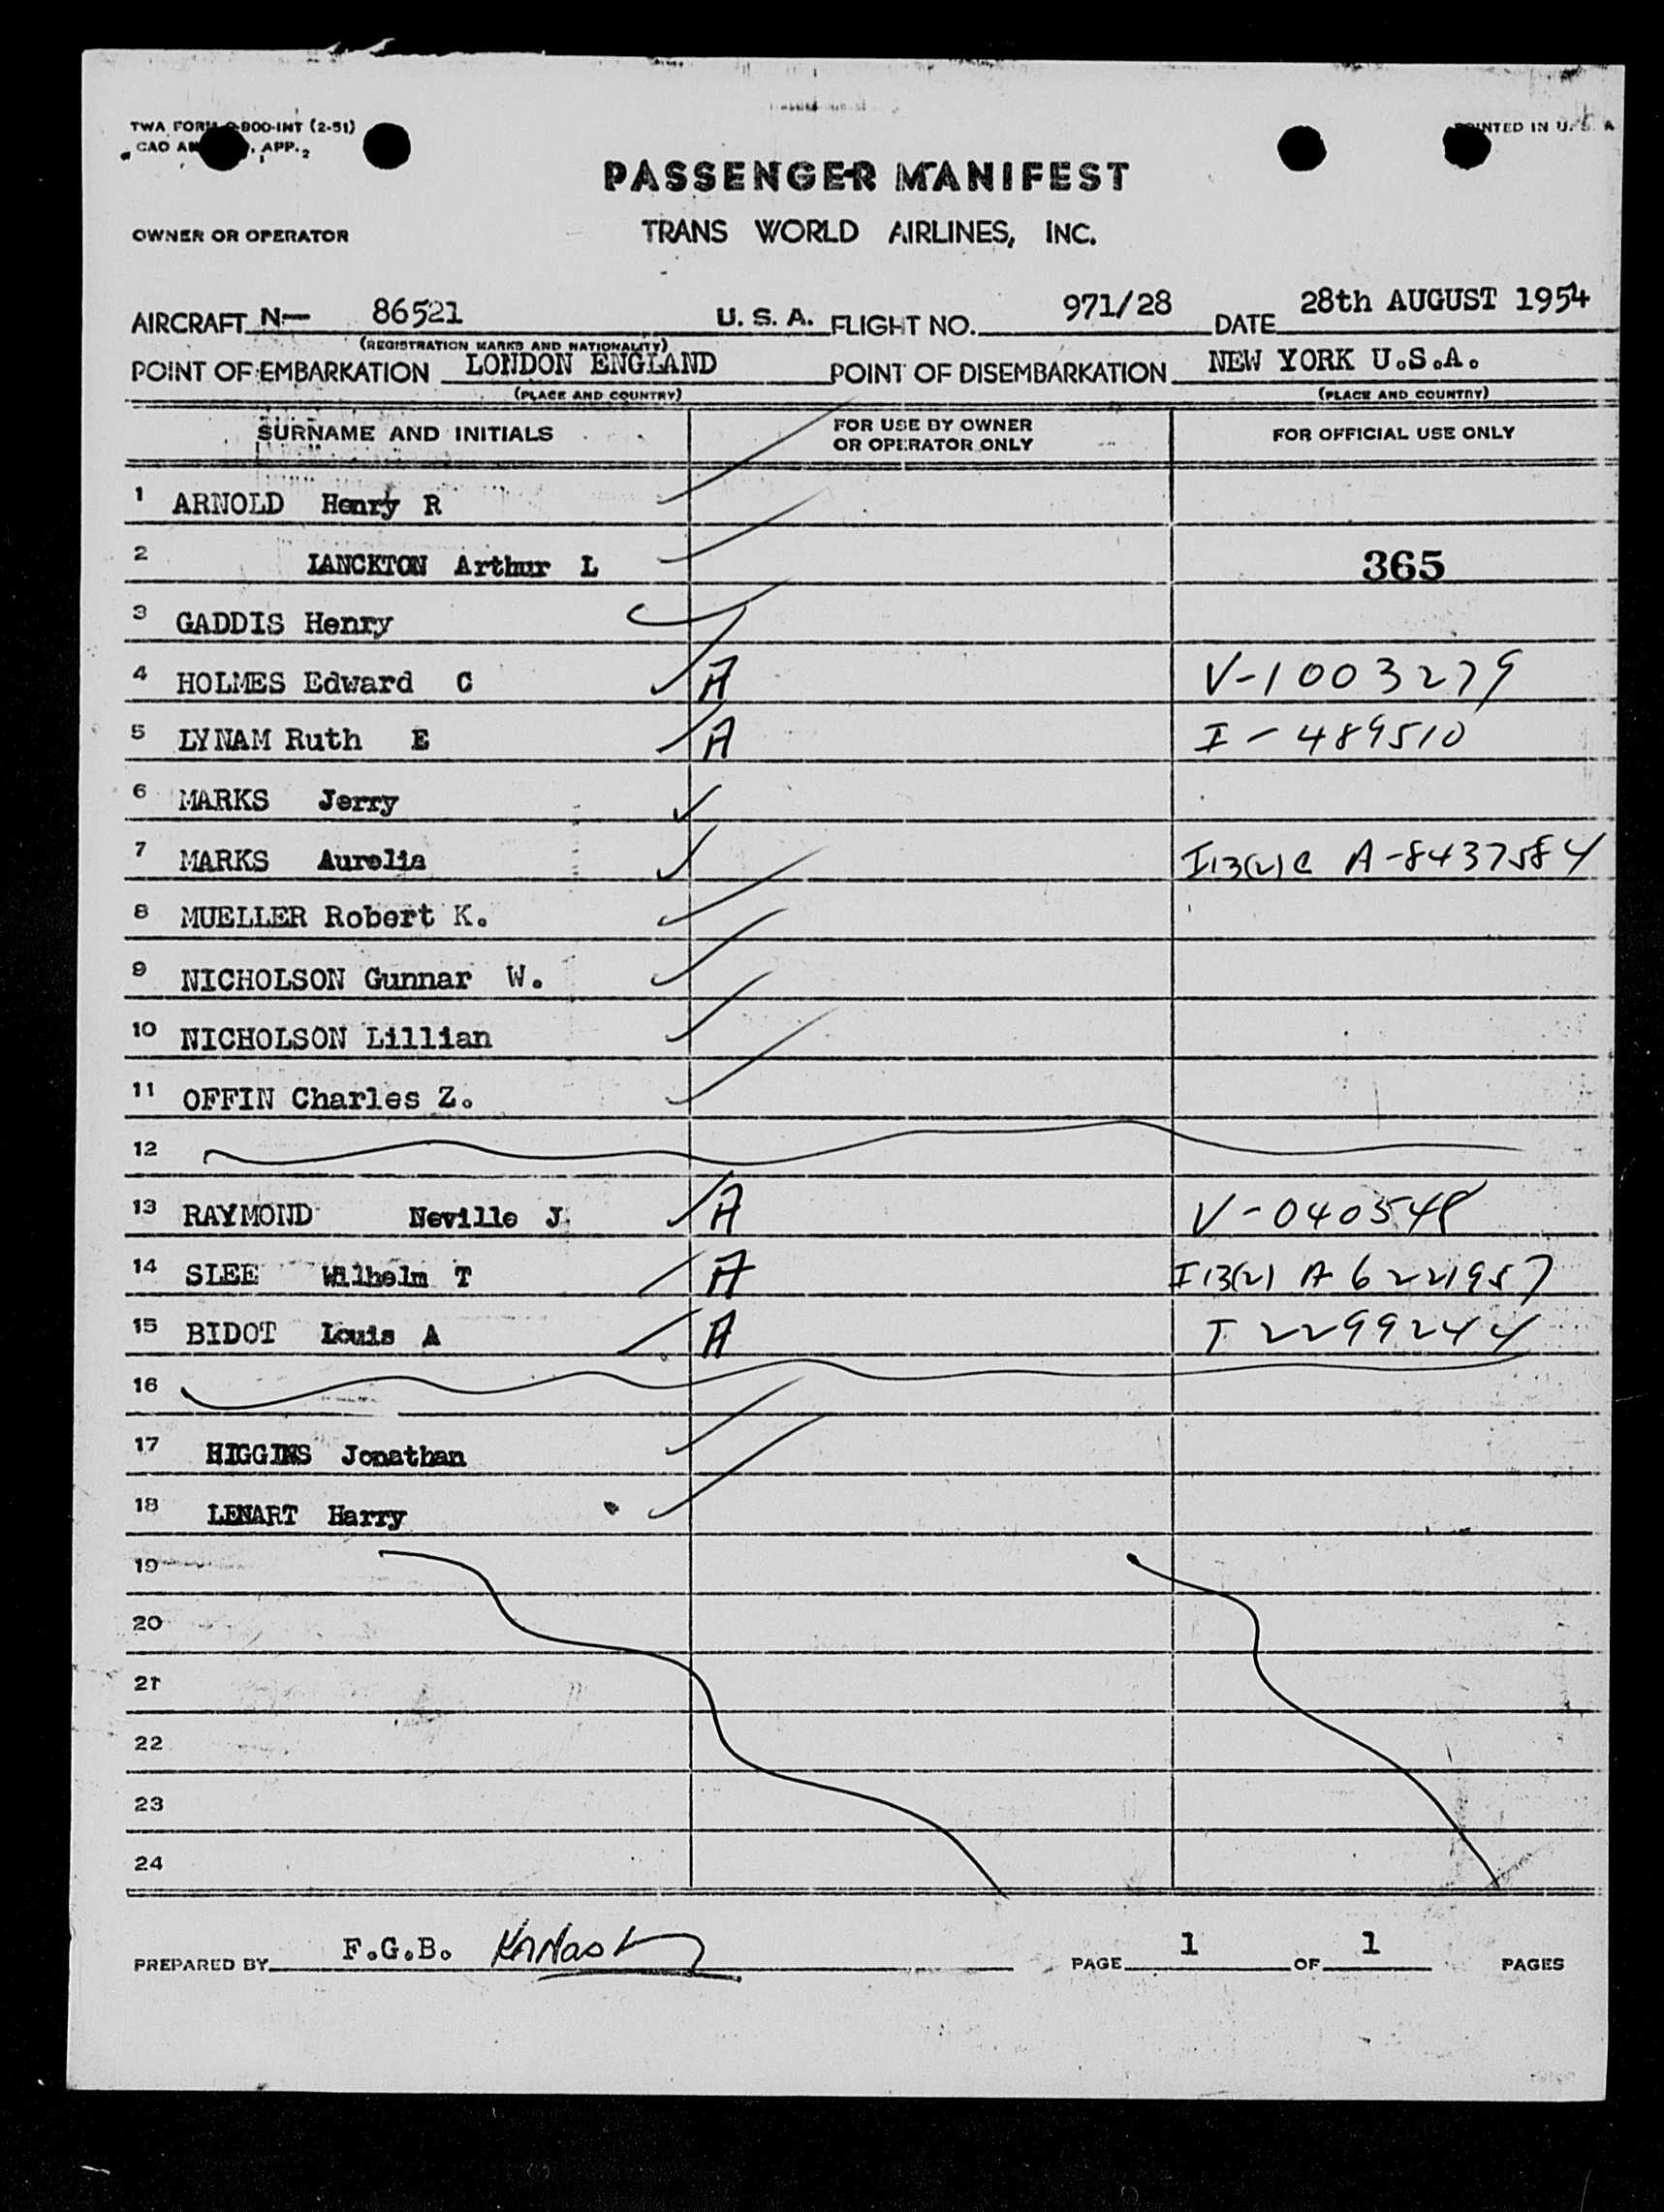 TWA FORM -800-INT (2-51)
PRINTED IN U.S.A
CAO APP. 2
PASSENGER MANIFEST
OWNER OR OPERATOR
TRANS WORLD AIRLINES, INC.
AIRCRAFT N— 86521 U.S.A. FLIGHT NO. 971/28 DATE 28th AUGUST 1954
(REGISTRATION MARKS AND NATIONALITY)
POINT OF EMBARKATION LONDON ENGLAND POINT OF DISEMBARKATION NEW YORK U.S.A.
(PLACE AND COUNTRY) (PLACE AND COUNTRY)
SURNAME AND INITIALS FOR USE BY OWNER OR OPERATOR ONLY FOR OFFICIAL USE ONLY
1 ARNOLD Henry R
2 LANCKTON Arthur L 365
3 GADDIS Henry
4 HOLMES Edward C A V-1003279
5 LYNAM Ruth E A I-489510
6 MARKS Jerry
7 MARKS Aurelia I13(2)C A-8437584
8 MUELLER Robert K.
9 NICHOLSON Gunnar W.
10 NICHOLSON Lillian
11 OFFIN Charles Z.
12
13 RAYMOND Neville J A V-040548
14 SLEE Wilhelm T A I13(2) A 6221957
15 BIDOT Louis A A T 2299244
16
17 HIGGINS Jonathan
18 LENART Harry
19
20
21
22
23
24
PREPARED BY F.G.B. PAGE 1 OF 1 PAGES